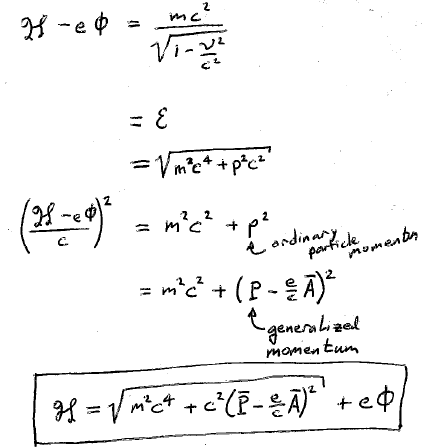 ℋ - eϕ = mc² / √(1 - v²/c²)
= ℰ
= √(m²c⁴ + p²c²)
((ℋ - eϕ)/c)² = m²c² + p²
ordinary particle momentum
= m²c² + (P - e/c Ā)²
generalized momentum
ℋ = √(m²c⁴ + c²(P̄ - e/c Ā)²) + eϕ